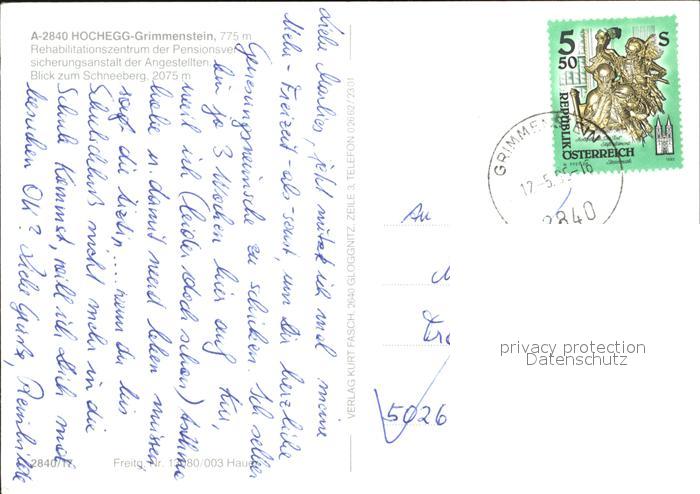 A-2840 HOCHEGG-Grimmenstein, 775 m
Rehabilitationszentrum der Pensionsver-
sicherungsanstalt der Angestellten.
Blick zum Schneeberg, 2075 m
Liebe Marlies, jetzt nütze ich mal meine
Mehr-Freizeit-als-sonst, um Dir herzliche
Genesungswünsche zu schicken. Ich selber
bin ja 3 Wochen hier auf Kur,
weil ich (leider doch schon) Asthma
habe u. damit werd leben müssen
sagt die Ärztin.... wenn du bis
Schulschluß nicht mehr in die
Schule kommst, will ich Dich mal
besuchen OK? Liebe Grüße,
2840/17 Freitg. Nr. 12080/003 Hauer
VERLAG KURT FASCH, 2640 GLOGGNITZ, ZEILE 3, TELEFON 02662/2301
5 50 S
REPUBLIK
ÖSTERREICH
GRIMMENSTEIN
2840
An
5026
privacy protection
Datenschutz